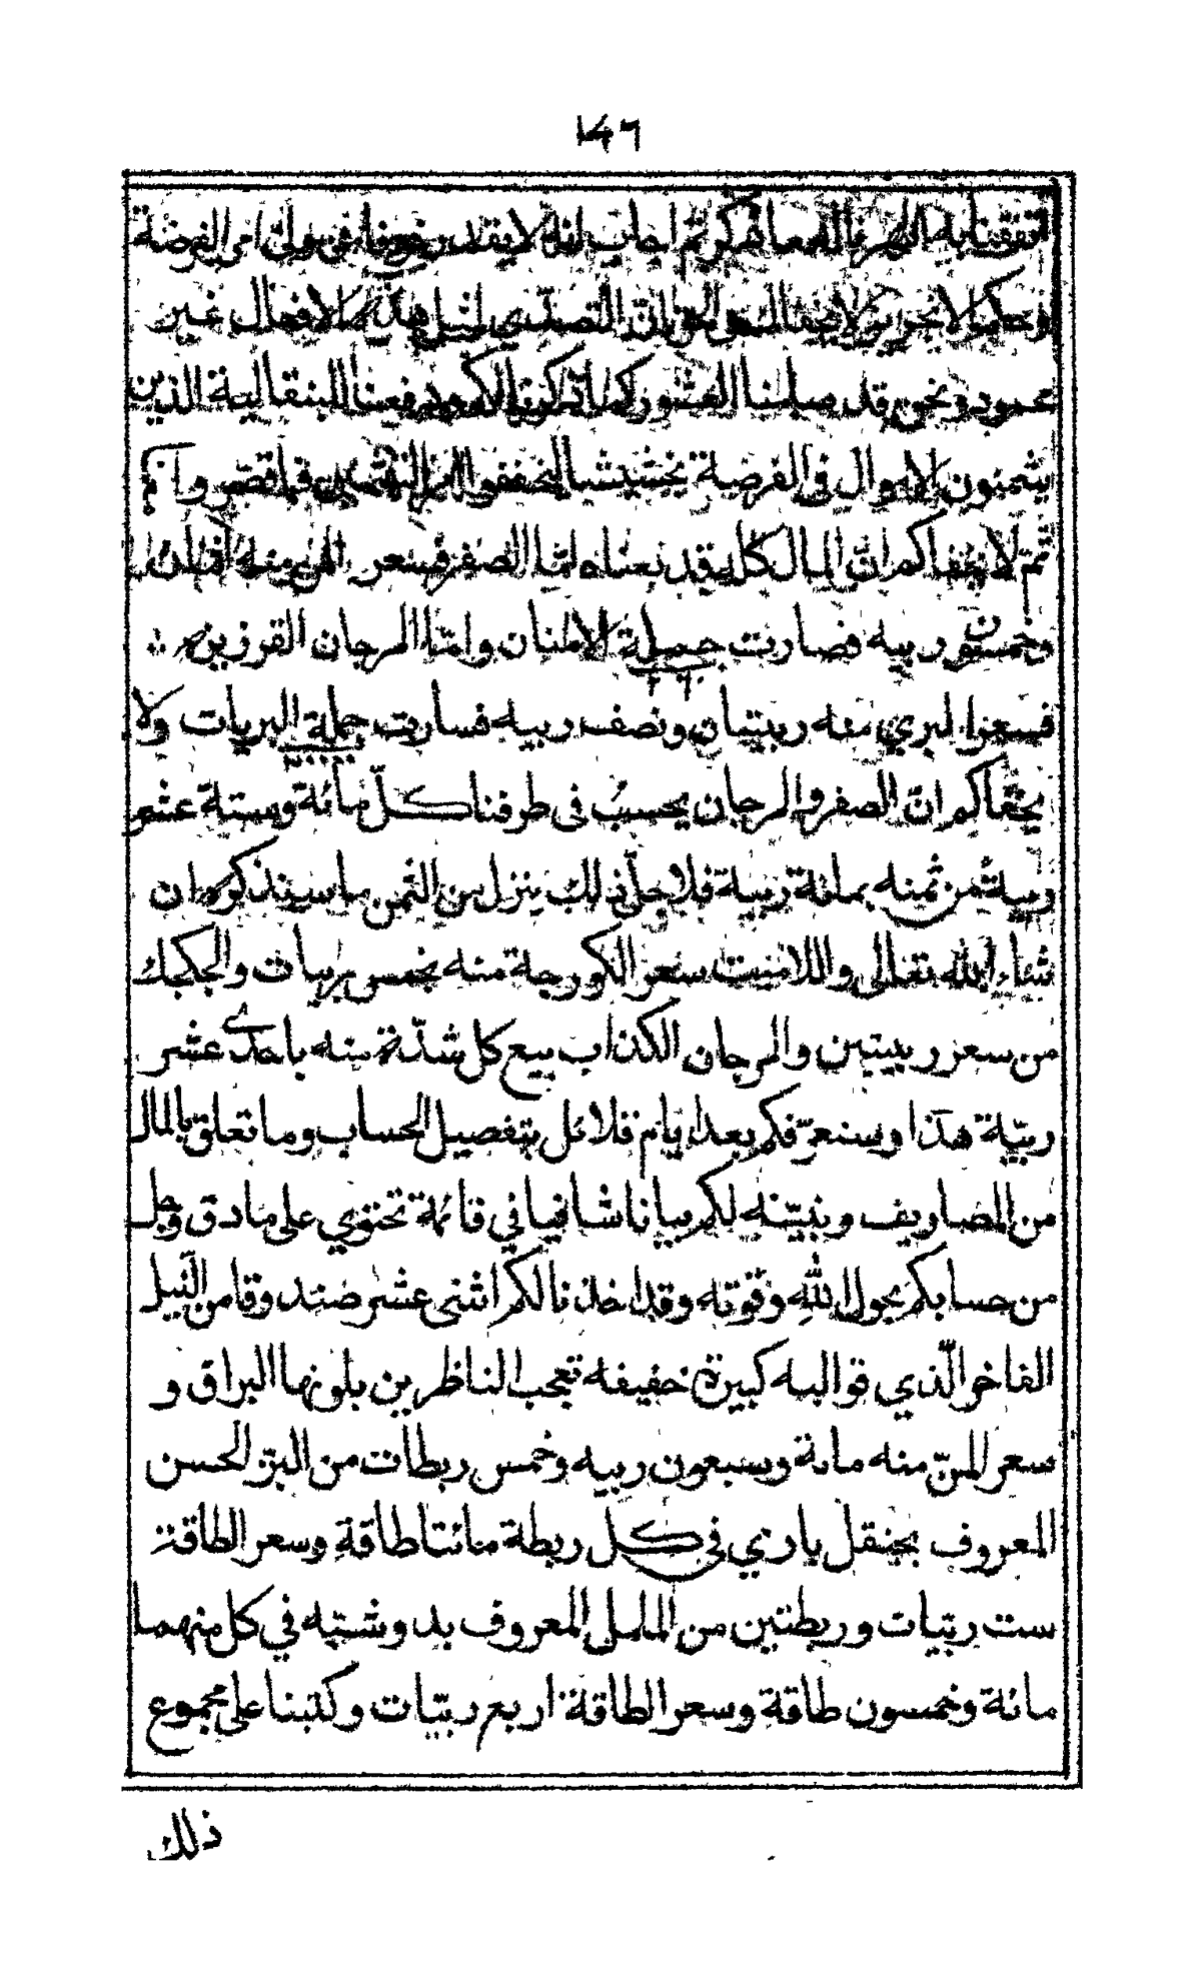 ١٤٦
لانه لا يقدر
ولا الافعال غير
ونحن قد صلبنا العشور كما ذكرنا لكم ودفعنا للبنقالية الذين
يثمنون الاموال في الفرضة بخشيشا ليخففوا
ثمّ لا يخفاكم انّ المال كله قد بعناه امّا الصفر فسعر المن منه
وخمسون ربيه فصارت جملة الامنان وامّا المرجان القرزين
٢٦٠
فسعر البري منه ربيتان ونصف ربيه فسارت جملة البريات ولا
يخفاكم انّ الصفر والمرجان يحسبُ في طرفنا كلّ مائة وستة عشر
ربية من ثمنه بمائة ربية فلاجل ذلك ينزل من الثمن ما سيذكر ان
شاء الله تعالى واللامنيت سعر الكورجة منه بخمس ربيات والجكجك
من سعر ربيتين والمرجان الكذاب بيع كل شدّة منه باحدى عشر
ربيّة هذا وسنعرّفكم بعد ايام قلائل بتفصيل الحساب وما تعلق بالمال
من المصاريف ونبيّنه لكم بيانا شافيا في قائمة تحتوي على ما دق وجل
من حسابكم بحول اللهِ وقوّته وقد اخذنا لكم اثنى عشر صندوقا من النّيل
الفاخر الّذي قوالبه كبيرة خفيفه تعجب الناظرين بلونها البراق و
سعر المنّ منه مائة وسبعون ربيه وخمس ربطات من البزّ الحسن
المعروف بجنقل باري في كل ربطة مائتا طاقةِ وسعر الطاقة
ست ربّيات وربطتين من الململ المعروف بدوشته في كل منهما
مائة وخمسون طاقة وسعر الطاقة اربع ربّيات وكتبنا على مجموع
ذلك